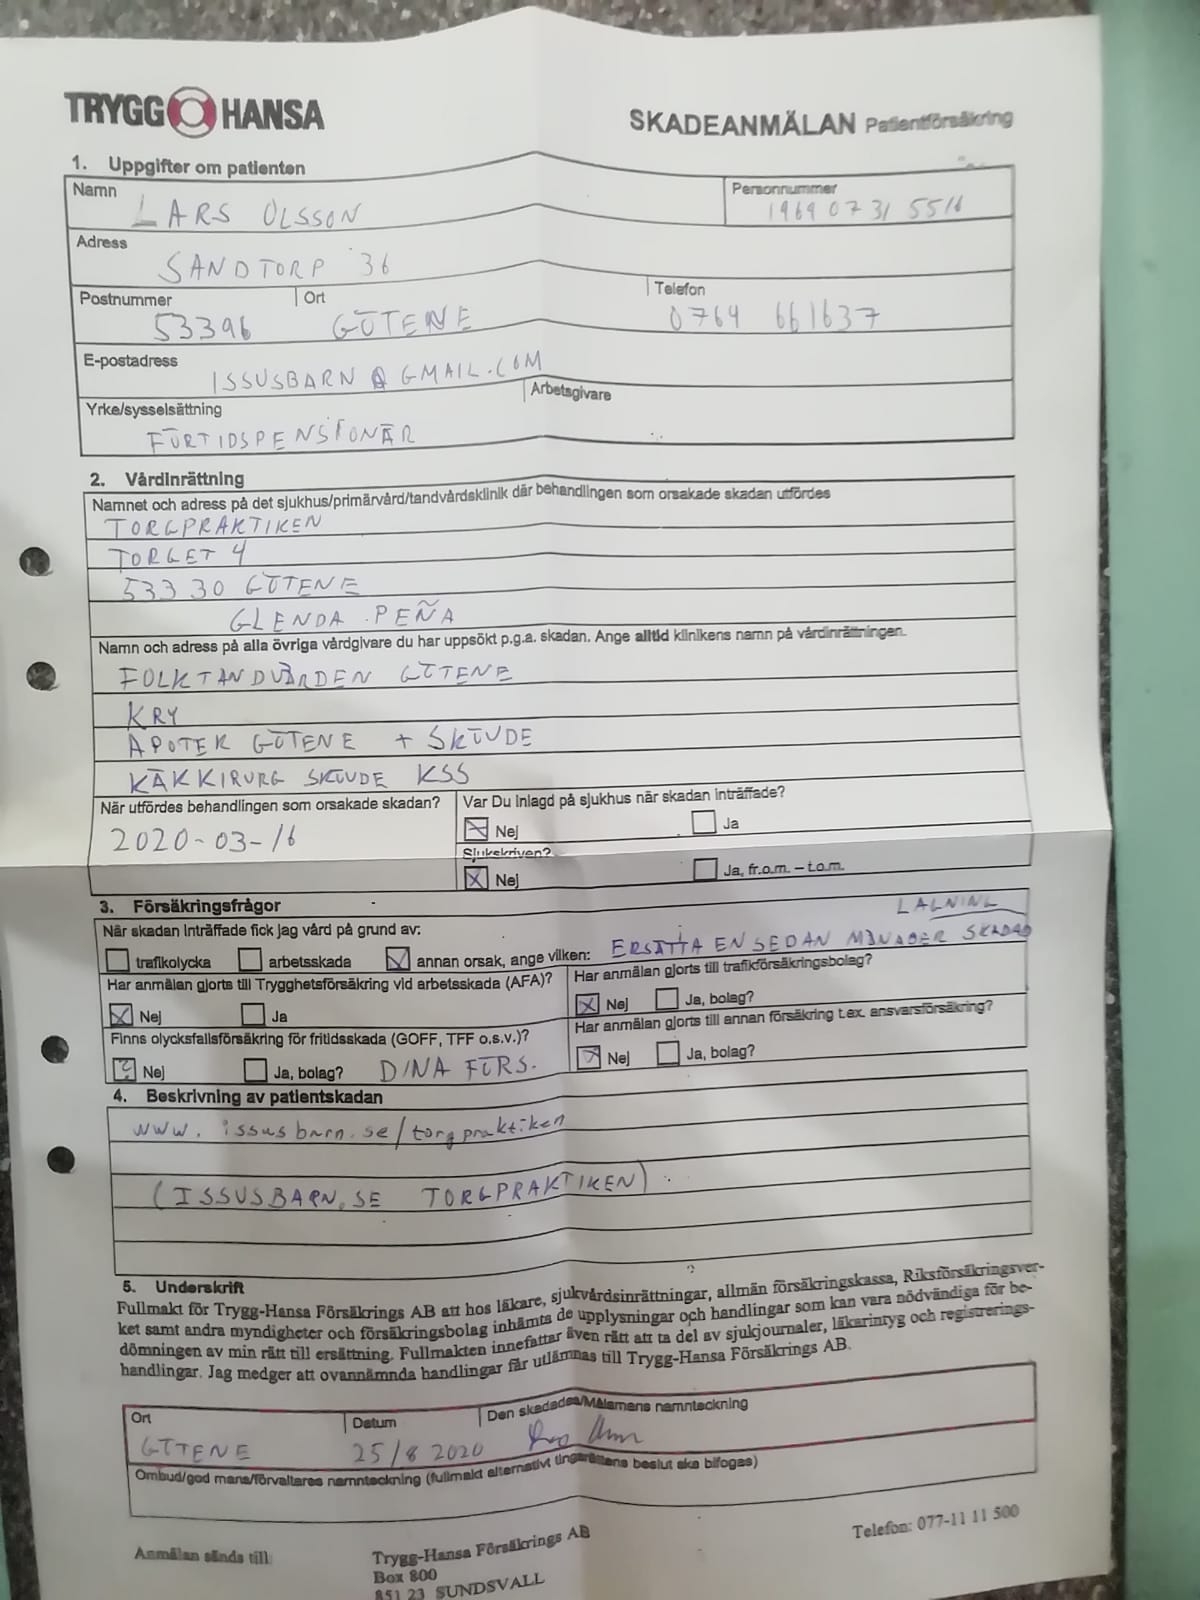 TRYGG HANSA
SKADEANMÄLAN Patientförsäkring
1. Uppgifter om patienten
Namn
LARS OLSSON
Personnummer
19690731 5516
Adress
SANDTORP 36
Postnummer
53396
Ort
GÖTENE
Telefon
0764 661637
E-postadress
ISSUSBARN@GMAIL.COM
Yrke/sysselsättning
FÖRTIDSPENSIONÄR
Arbetsgivare
2. Vårdinrättning
Namnet och adress på det sjukhus/primärvård/tandvårdsklinik där behandlingen som orsakade skadan utfördes
TORGPRAKTIKEN
TORGET 4
533 30 GÖTENE
GLENDA PEÑA
Namn och adress på alla övriga vårdgivare du har uppsökt p.g.a. skadan. Ange alltid klinikens namn på vårdinrättningen.
FOLKTANDVÅRDEN GÖTENE
KRY
APOTEK GÖTENE + SKÖVDE
KÄKKIRURG SKÖVDE KSS
När utfördes behandlingen som orsakade skadan?
2020-03-16
Var Du inlagd på sjukhus när skadan inträffade?
Nej
Ja
Sjukskriven?
Nej
Ja, fr.o.m. – t.o.m.
3. Försäkringsfrågor
När skadan inträffade fick jag vård på grund av:
LAGNING
trafikolycka
arbetsskada
annan orsak, ange vilken: ERSÄTTA EN SEDAN MÅNADER SKADAD
Har anmälan gjorts till Trygghetsförsäkring vid arbetsskada (AFA)?
Nej
Ja
Har anmälan gjorts till trafikförsäkringsbolag?
Nej
Ja, bolag?
Finns olycksfallsförsäkring för fritidsskada (GOFF, TFF o.s.v.)?
? Nej
Ja, bolag? DINA FÖRS.
Har anmälan gjorts till annan försäkring t.ex. ansvarsförsäkring?
Nej
Ja, bolag?
4. Beskrivning av patientskadan
www.issusbarn.se/torgpraktiken
(ISSUSBARN.SE TORGPRAKTIKEN)
5. Underskrift
Fullmakt för Trygg-Hansa Försäkrings AB att hos läkare, sjukvårdsinrättningar, allmän försäkringskassa, Riksförsäkringsver-
ket samt andra myndigheter och försäkringsbolag inhämta de upplysningar och handlingar som kan vara nödvändiga för be-
dömningen av min rätt till ersättning. Fullmakten innefattar även rätt att ta del av sjukjournaler, läkarintyg och registrerings-
handlingar. Jag medger att ovannämnda handlingar får utlämnas till Trygg-Hansa Försäkrings AB.
Ort
GÖTENE
Datum
25/8 2020
Den skadades/Målsmans namnteckning
Ombud/god mans/förvaltares namnteckning (fullmakt alternativt tingsrättens beslut ska bifogas)
Anmälan sänds till:
Trygg-Hansa Försäkrings AB
Box 800
851 23 SUNDSVALL
Telefon: 077-11 11 500